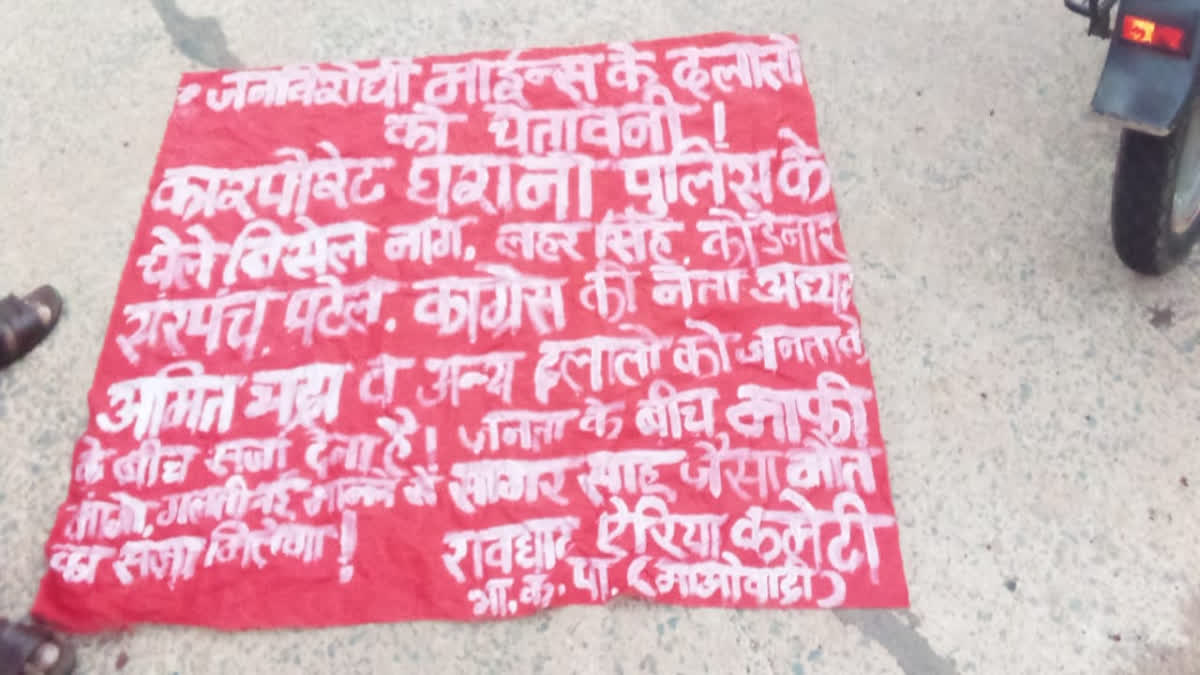 जनविरोधी माईन्स के दलालो
को चेतावनी!
कारपोरेट घराना पुलिस के
चेले विसेल नाग, लहर सिंह, कोडेनार
सरपंच पटेल, कांग्रेस की नेता अध्यक्ष
अमित भद्र व अन्य दलालो को जनता के
के बीच सजा देना है! जनता के बीच माफी
मांगो, गलती नई मानने से सागर साहू जैसा मौत
का सजा मिलेगा!
रावघाट ऐरिया कमेटी
भा. क. पा. (माओवादी)